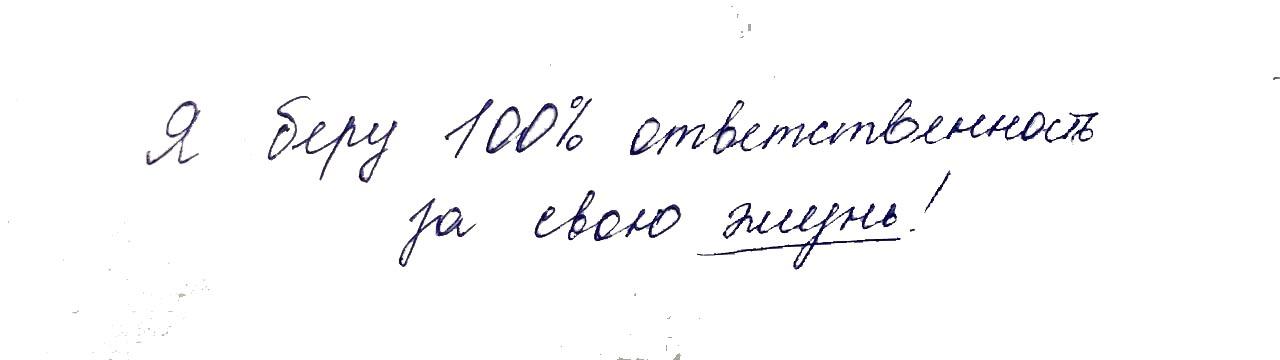 Я беру 100% ответственность
за свою жизнь!